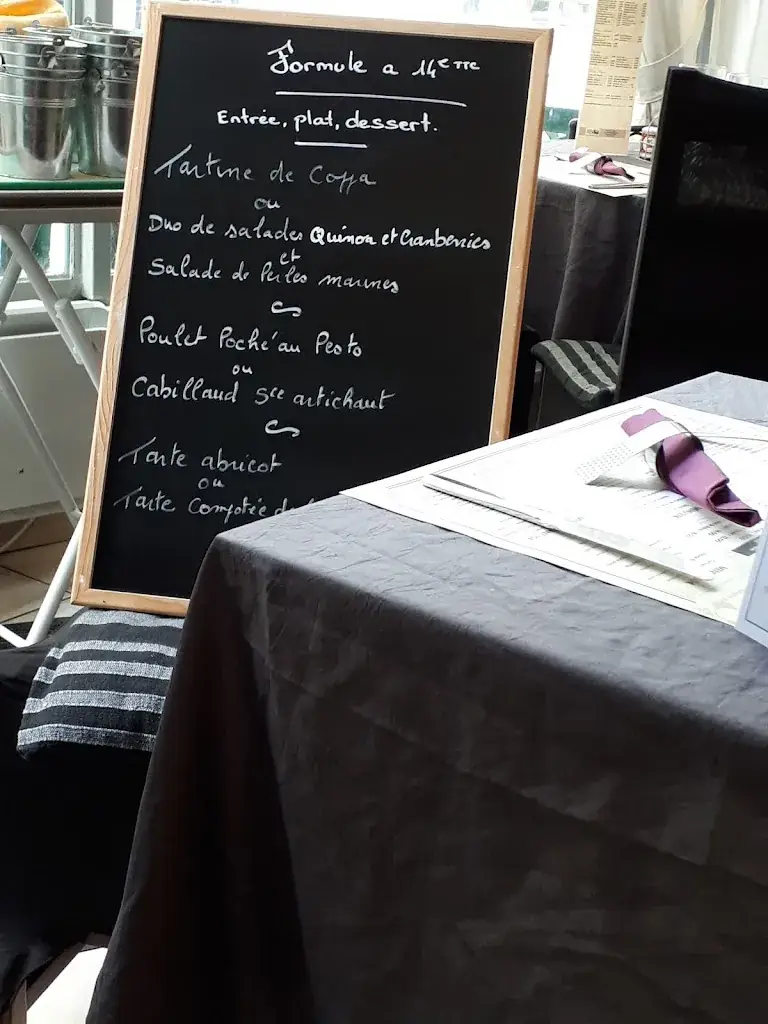 Formule a 14€ TTC
Entrée, plat, dessert.
Tartine de Coppa
ou
Duo de salades Quinoa et Cranberries
et
Salade de Perles marines
Poulet Poché au Pesto
ou
Cabillaud Sce artichaut
Tarte abricot
ou
Tarte Compotée